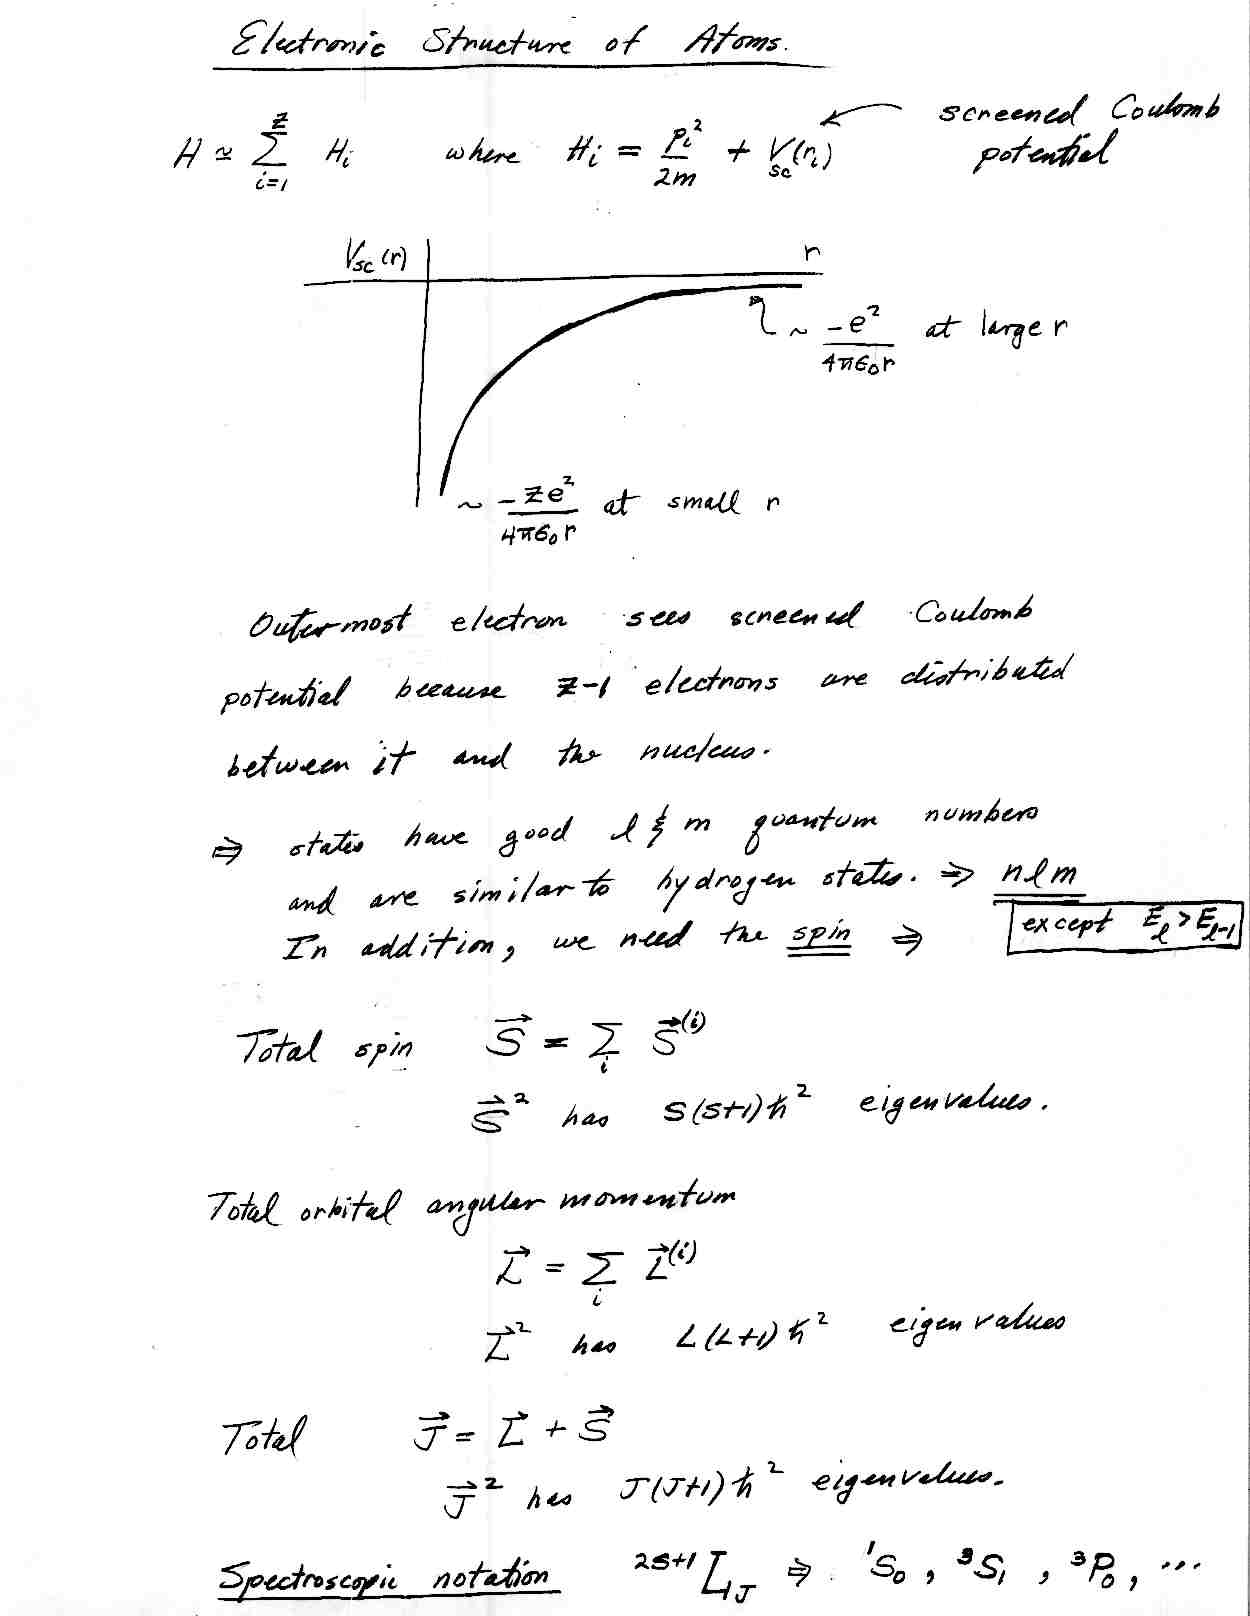 Electronic Structure of Atoms.
H ≃ Σ_{i=1}^{Z} H_i where H_i = p_i²/2m + V_sc(r_i) screened Coulomb
potential
V_sc(r) r
~ -e²/4πε₀r at large r
~ -Ze²/4πε₀r at small r
Outermost electron sees screened Coulomb
potential because Z-1 electrons are distributed
between it and the nucleus.
⇒ states have good l & m quantum numbers
and are similar to hydrogen states. ⇒ nlm
In addition, we need the spin ⇒ except E_l > E_{l-1}
Total spin S⃗ = Σ_i S⃗^(i)
S⃗² has S(S+1)ħ² eigenvalues.
Total orbital angular momentum
L⃗ = Σ_i L⃗^(i)
L⃗² has L(L+1)ħ² eigenvalues
Total J⃗ = L⃗ + S⃗
J⃗² has J(J+1)ħ² eigenvalues.
Spectroscopic notation ^{2S+1}L_J ⇒ ¹S₀, ³S₁, ³P₀, ...